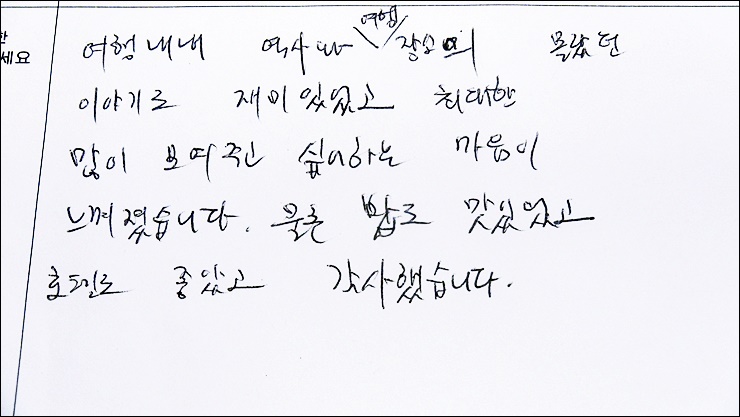 한
세요
여행내내 역사와 여행 장소의 몰랐던
이야기로 재미있었고 최대한
많이 보여주고 싶어하는 마음이
느껴졌습니다. 물론 밥도 맛있었고
호텔도 좋았고 감사했습니다.